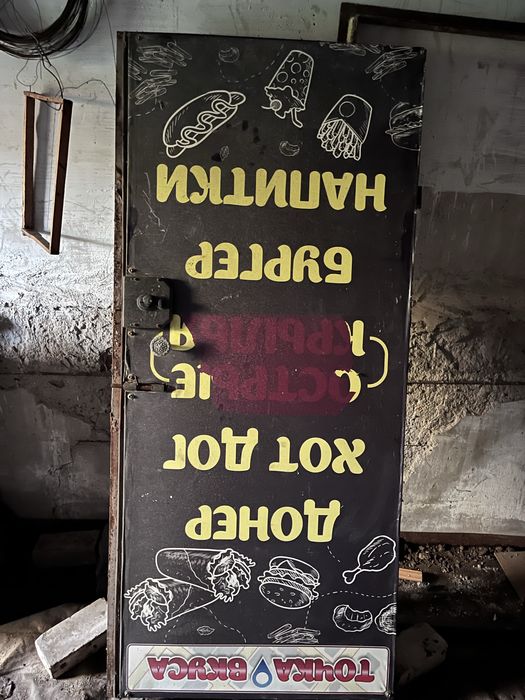 ТОЧКА ВКУСА
ДОНЕР
ХОТ ДОГ
ОСТРЫЕ
КРЫЛЬЯ
БУРГЕР
НАПИТКИ